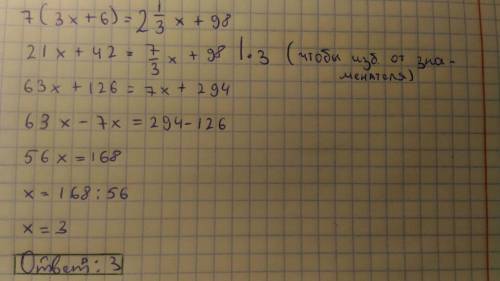 7(3x+6)=2 1/3 x + 98
21x + 42 = 7/3 x + 98 |·3 (чтобы изб от зна-
менателя)
63x + 126 = 7x + 294
63x - 7x = 294-126
56x = 168
x = 168 : 56
x = 3
Ответ: 3